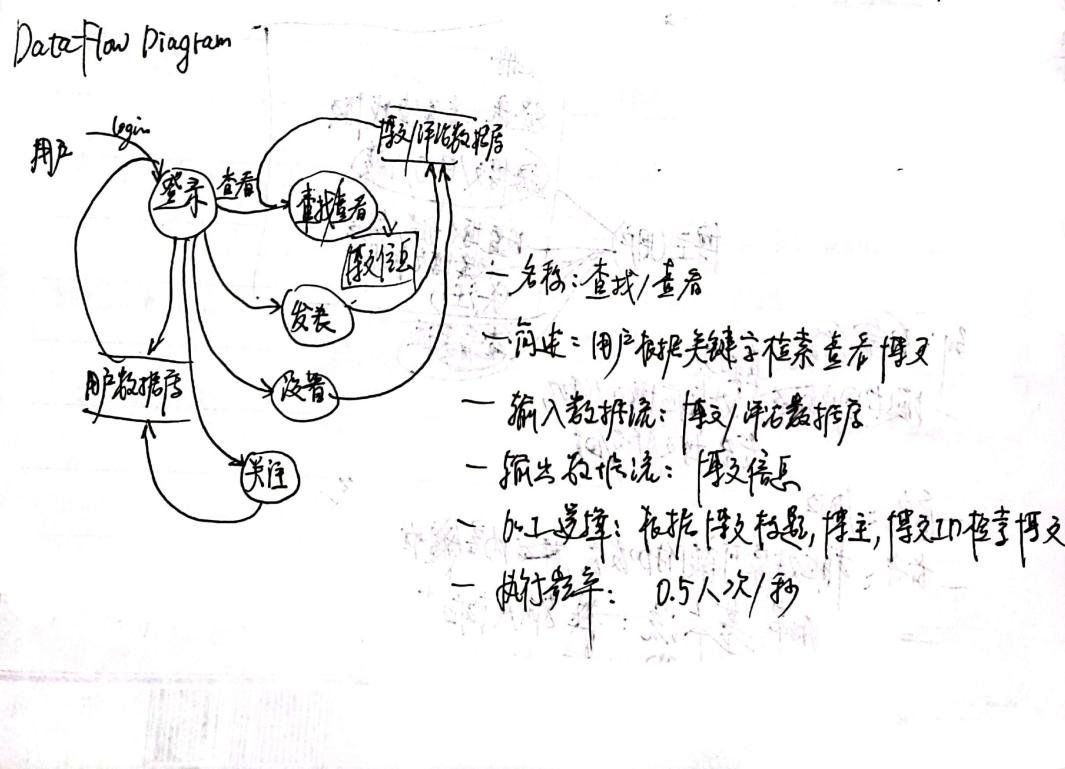 Data Flow Diagram
用户
login
登录
查看
博文/评论数据库
查找查看
博文信息
发表
设置
用户数据库
关注
一 名称：查找/查看
一 简述：用户根据关键字检索查看博文
一 输入数据流：博文/评论数据库
一 输出数据流：博文信息
一 加工逻辑：根据博文标题，博主，博文ID检索博文
一 执行频率：0.5人次/秒